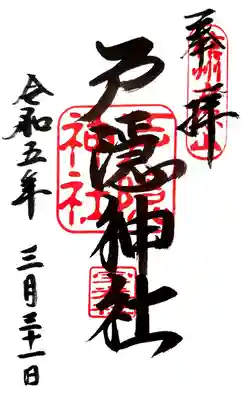 奉拝
戸隠神社
令和五年 三月三十一日